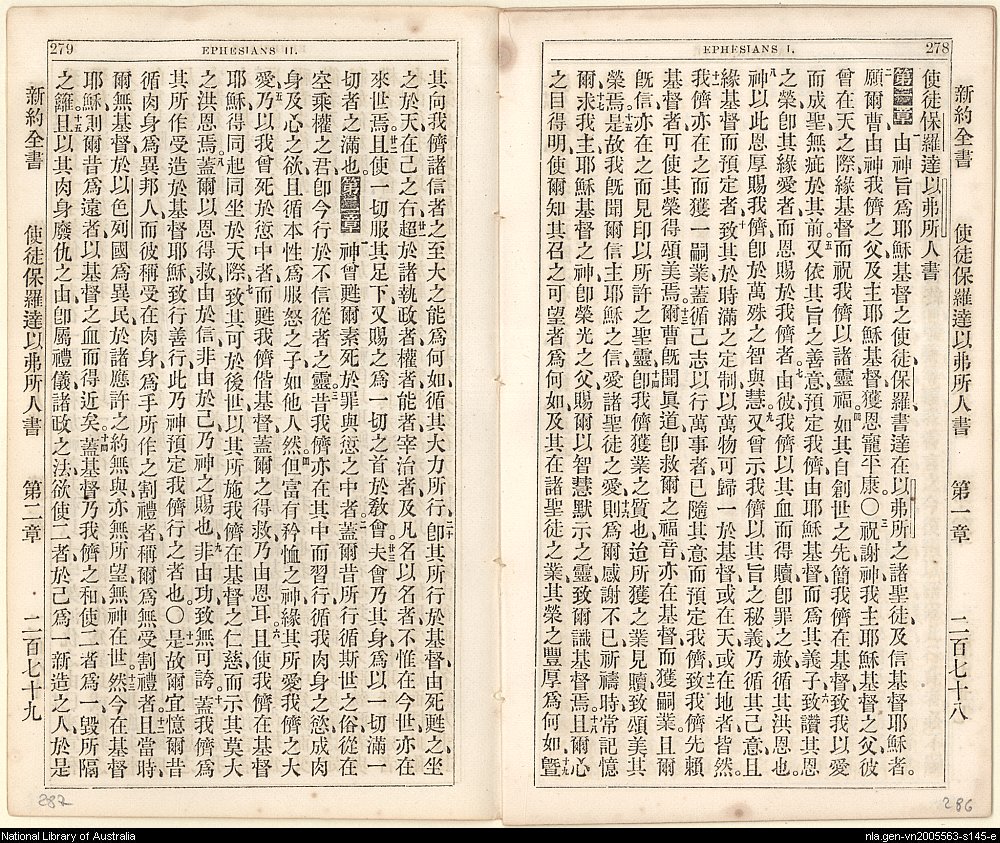 EPHESIANS I.
278
新約全書 使徒保羅達以弗所人書 第一章 二百七十八
使徒保羅達以弗所人書
第一章 一由神旨爲耶穌基督之使徒保羅書達在以弗所之諸聖徒及信基督耶穌者。
二願爾曹由神我儕之父及主耶穌基督獲恩寵平康。〇三祝謝神我主耶穌基督之父彼
曾在天之際緣基督而祝我儕以諸靈福、四如其自創世之先簡我儕在基督致我以愛
而成聖無疵於其前、五又依其旨之善意預定我儕由耶穌基督而爲其義子、六致讚其恩
之榮卽其緣愛者而恩賜於我儕者。七由彼我儕以其血而得贖卽罪之赦循其洪恩也。
八神以此恩厚賜我儕卽於萬殊之智與慧、九又曾示我儕以其旨之秘義乃循其己意且
緣基督而預定者、十致其於時滿之定制以萬物可歸一於基督或在天或在地者皆然。
十一我儕亦在之而獲一嗣業蓋循己志以行萬事者已隨其意而預定我儕、十二致我儕先賴
基督者可使其榮得頌美焉。十三爾曹旣聞眞道卽救爾之福音亦在基督而獲嗣業。且爾
旣信亦在之而見印以所許之聖靈、十四卽我儕獲業之質也迨所獲之業見贖致頌美其
榮焉。十五是故我旣聞爾信主耶穌之信愛諸聖徒之愛、十六則爲爾感謝不已祈禱時常記憶
爾、十七求我主耶穌基督之神卽榮光之父賜爾以智慧默示之靈致爾識基督焉、十八且爾心
之目得明使爾知其召之可望者爲何如及其在諸聖徒之業其榮之豐厚爲何如、十九曁
286
EPHESIANS II.
279
其向我儕諸信者之至大之能爲何如循其大力所行、二十卽其所行於基督由死甦之坐
之於天在己之右、廿一超於諸執政者權者能者宰治者及凡名以名者不惟在今世亦在
來世焉、廿二且使一切服其足下又賜之爲一切之首於敎會、廿三夫會乃其身爲以一切滿一
切者之滿也。第二章 一神曾甦爾素死於罪與愆之中者、二蓋爾昔所行循斯世之俗從在
空乘權之君卽今行於不信從者之靈、三昔我儕亦在其中而習行循我肉身之慾成肉
身及心之欲且循本性爲服怒之子如他人然。四但富有矜恤之神緣其所愛我儕之大
愛、五乃以我曾死於愆中者而甦我儕偕基督蓋爾之得救乃由恩耳、六且使我儕在基督
耶穌得同起同坐於天際、七致其可於後世以其所施我儕在基督之仁慈而示其莫大
之洪恩焉。八蓋爾以恩得救由於信非由於己乃神之賜也、九非由功致無可誇、十蓋我儕爲
其所作受造於基督耶穌致行善行此乃神預定我儕行之者也。〇十一是故爾宜憶爾昔
循肉身爲異邦人而彼稱受在肉身爲手所作之割禮者稱爾爲無受割禮者、十二且當時
爾無基督於以色列國爲異民於諸應許之約無與亦無所望無神在世、十三然今在基督
耶穌則爾昔爲遠者以基督之血而得近矣。十四蓋基督乃我儕之和使二者爲一毀所隔
之籬、十五且以其肉身廢仇之由卽屬禮儀諸政之法欲使二者於己爲一新造之人於是
新約全書 使徒保羅達以弗所人書 第二章 二百七十九
287
National Library of Australia
nla.gen-vn2005563-s145-e